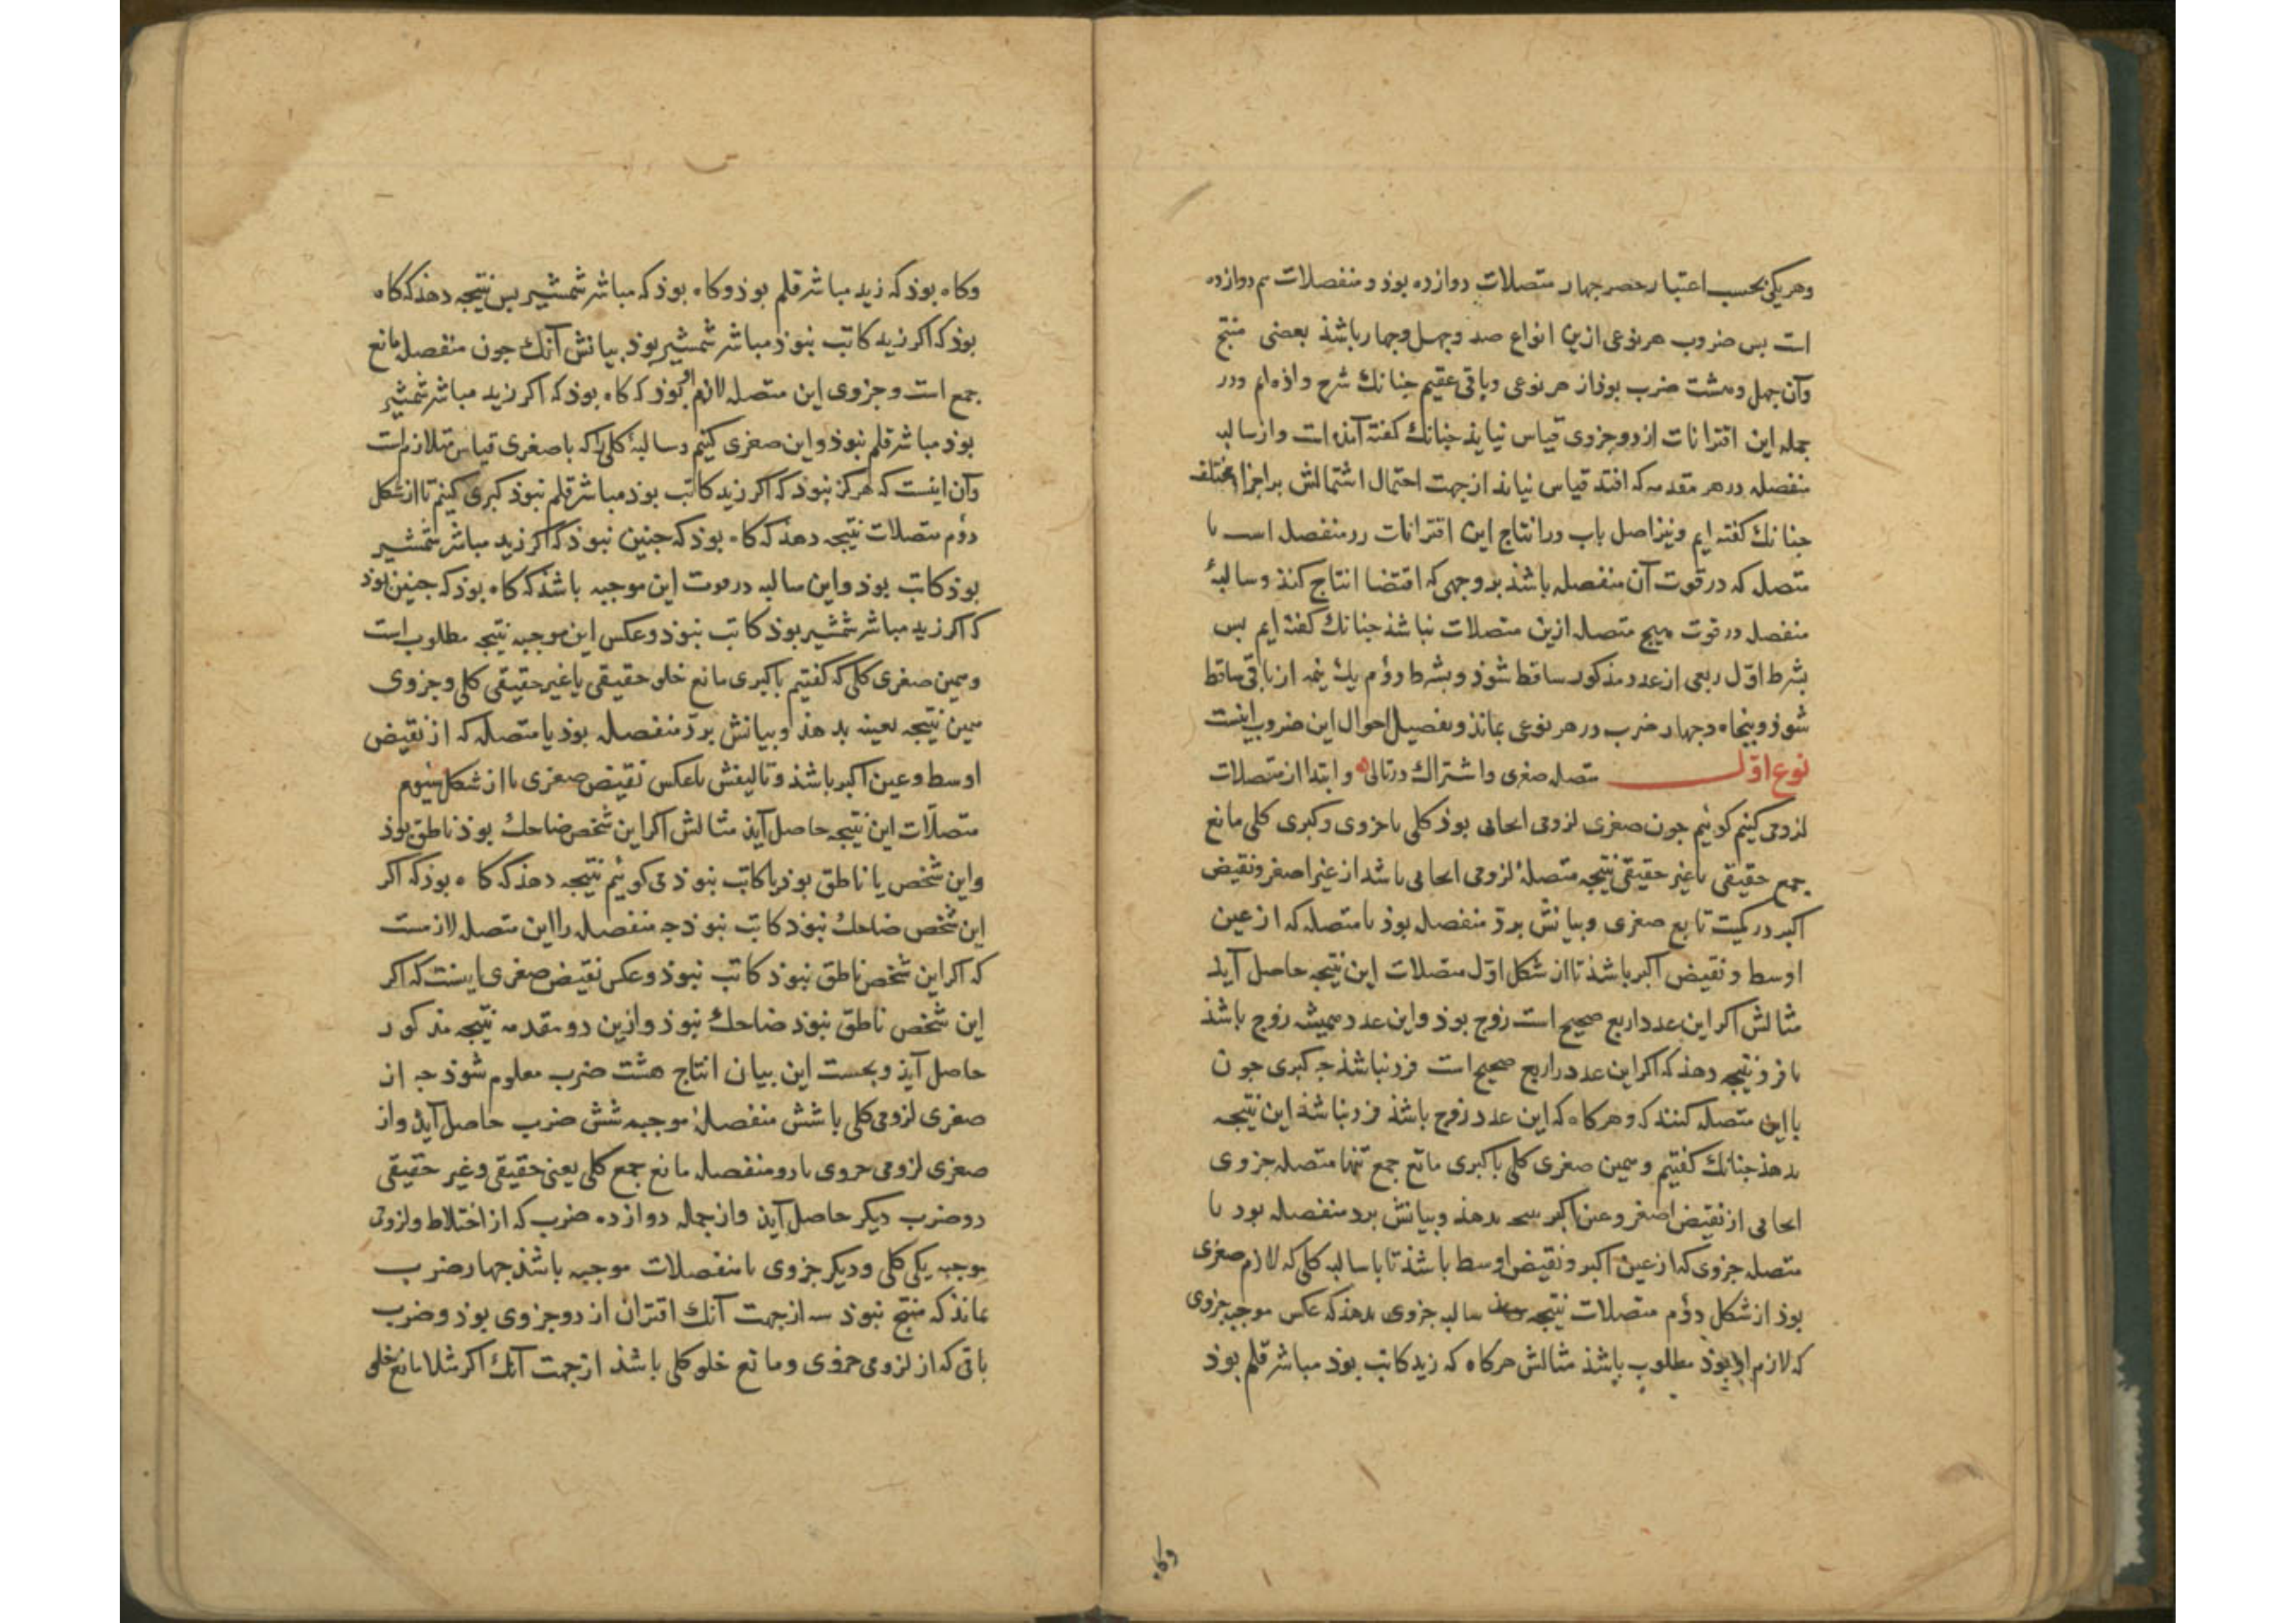 وهریکی بحسب اعتبار حصر چهار متصلات دوازده بوذ و منفصلات هم دوازده
است بس ضروب هر نوعی ازین انواع صد وجهل وجهار باشذ بعضی منتج
وآن جهل وهشت ضرب بوذ از هر نوعی وباقی عقیم جنانك شرح داذه ایم ودر
جمله این اقترانات از دو جزوی قیاس نیایذ جنانك کفته آمذه است واز سالبه
منفصله در هر مقدمه که افتد قیاس نیایذ از جهت احتمال اشتمالش بر اجزاء مختلف
جنانك کفته ایم ونیز اصل باب در انتاج این اقترانات رد منفصل است با
متصل که در قوت آن منفصله باشذ بر وجهی که اقتضا انتاج کنذ وسالبهٔ
منفصله در قوت هیج متصله ازین متصلات نباشذ جنانك کفته ایم بس
بشرط اوّل ربعی از عدد مذکور ساقط شوذ وبشرط دوّم یك نیمه از باقی ساقط
شوذ وبنجاه وجهار ضرب در هر نوعی بمانذ وتفصیل احوال این ضروب اینست
نوع اوّل متصله صغری واشتراك در تالی وابتدا از متصلات
لزومی کنیم کوئیم جون صغری لزومی ایجابی بوذ کلی یا جزوی وکبری کلی مانع
جمع حقیقی یا غیر حقیقی نتیجه متصلهٔ لزومی ایجابی باشد از عین اصغر ونقیض
اکبر در کمیّت تابع صغری وبیانش بردّ منفصله بوذ با متصله که از عین
اوسط ونقیض اکبر باشذ تا از شکل اوّل متصلات این نتیجه حاصل آید
مثالش اکر این عدد اربع صحیح است زوج بوذ واین عدد همیشه زوج باشذ
یا فرد نتیجه دهذ که اکر این عدد اربع صحیح است فرد نباشذ جه کبری جون
با این متصله کنند که وهرکاه که این عدد زوج باشذ فرد نباشذ این نتیجه
بدهذ جنانك کفتیم وهمین صغری کلی با کبری مانع جمع تنها متصله جزوی
ایجابی از نقیض اصغر وعین اکبر نتیجه بدهذ وبیانش برد منفصله بود با
متصله جزوی که از عین اکبر ونقیض اوسط باشذ تا با سالبه کلی که لازم صغری
بوذ از شکل دوّم متصلات نتیجه سالبه جزوی بدهذ که عکس موجبه جزوی
که لازم او بوذ مطلوب باشذ مثالش هرکاه که زید کاتب بوذ مباشر قلم بوذ
وکاه
وکاه بوذ که زید مباشر قلم بوذ وکاه بوذ که مباشر شمشیر بس نتیجه دهذ که کاه
بوذ که اکر زید کاتب نبوذ مباشر شمشیر بوذ بیانش آنك جون منفصله مانع
جمع است وجزوی این متصله لازم او بوذ که کاه بوذ که اکر زید مباشر شمشیر
بوذ مباشر قلم نبوذ واین صغری کنیم وسالبهٔ کلی را که با صغری قیاس متلازم است
وآن اینست که هرکز نبوذ که اکر زید کاتب بوذ مباشر قلم نبوذ کبری کنیم تا از شکل
دوّم متصلات نتیجه دهذ که کاه بوذ که جنین نبوذ که اکر زید مباشر شمشیر
بوذ کاتب بوذ واین سالبه در قوت این موجبه باشذ که کاه بوذ که جنین بوذ
که اکر زید مباشر شمشیر بوذ کاتب نبوذ وعکس این موجبه نتیجه مطلوب است
وهمین صغری کلی که کفتیم با کبری مانع خلو حقیقی یا غیر حقیقی کلی وجزوی
همین نتیجه بعینه بدهذ وبیانش بردّ منفصله بوذ با متصله که از نقیض
اوسط وعین اکبر باشذ وتالیفش با عکس نقیض صغری تا از شکل سیوم
متصلات این نتیجه حاصل آیذ مثالش اکر این شخص ضاحك بوذ ناطق بوذ
واین شخص یا ناطق بوذ یا کاتب نبوذ می کوئیم نتیجه دهذ که کاه بوذ که اکر
این شخص ضاحك نبوذ کاتب نبوذ جه منفصله را این متصله لازمست
که اکر این شخص ناطق نبوذ کاتب نبوذ وعکس نقیض صغری اینست که اکر
این شخص ناطق نبوذ ضاحك نبوذ وازین دو مقدمه نتیجه مذکور
حاصل آیذ وبحسب این بیان انتاج هشت ضرب معلوم شوذ جه از
صغری لزومی کلی با شش منفصلهٔ موجبه شش ضرب حاصل آیذ واز
صغری لزومی جزوی با دو منفصله مانع جمع کلی یعنی حقیقی وغیر حقیقی
دو ضرب دیکر حاصل آیذ واز جمله دوازده ضرب که از اختلاط دو لزومی
موجبه یکی کلی ودیکر جزوی با منفصلات موجبه باشذ جهار ضرب
بمانذ که منتج نبوذ سه از جهت آنك اقتران از دو جزوی بوذ وضرب
باقی که از لزومی جزوی ومانع خلو کلی باشذ از جهت آنك اکر مثلا مانع خلو